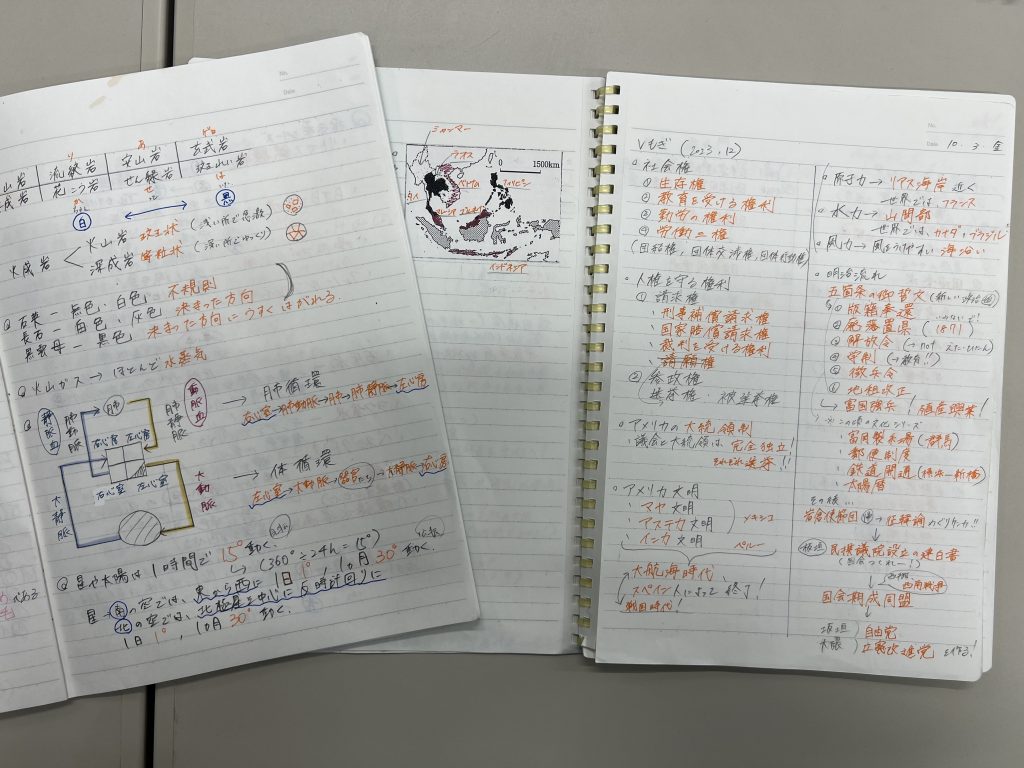 No.
Date
り あ ゲロ
山岩 流紋岩 安山岩 玄武岩
成岩 花こう岩 せん緑岩 斑れい岩
か せ は
白 黒
火成岩
火山岩 斑状 (浅い所で急激)
深成岩 等粒状 (深い所でゆっくり)
石英 ー 無色・白色 不規則
長石 ー 白色・灰色 決まった方向
黒雲母 ー 黒色 決まった方向にうすくはがれる
火山ガス → ほとんど水蒸気
静脈血
肺動脈
肺
肺静脈
動脈血
右心房 左心房
右心室 左心室
大静脈
大動脈
→ 肺循環
右心室→肺動脈→肺→肺静脈→左心房
→ 体循環
左心室→大動脈→ →大静脈→右心房
星や太陽は1時間で 15° 動く。
(360° ÷ 24h = 15°)
星 南の空では、東から西に 1日 1°、1ヵ月 30° 動く。
北の空では、北極星を中心に反時計回りに
1日 1°、1ヵ月 30° 動く。
ミャンマー
ラオス
ベトナム
フィリピン
タイ
マレーシア
インドネシア
0 1500km
Vもぎ (2023.12)
社会権
① 生存権
② 教育を受ける権利
③ 勤労の権利
④ 労働三権
(団結権、団体交渉権、団体行動権)
人権を守る権利
① 請求権
・刑事補償請求権
・国家賠償請求権
・裁判を受ける権利
・請願権
② 参政権
選挙権・被選挙権
アメリカの大統領制
・議会と大統領は完全独立!
それぞれ選挙!!
アメリカ文明
・マヤ文明
・アステカ文明
メキシコ
・インカ文明
ペルー
大航海時代
スペイン人によって終了!
戦国時代!
No.
Date 10.3.金
原子力 → リアス海岸近く
世界では、フランス
水力 → 山間部
世界では、カナダ・ブラジル
風力 → 風を うけやすい 海沿い
明治流れ
五箇条の御誓文
① 版籍奉還
② 廃藩置県 (1871)
③ 解放令
④ 学制 (→教育!!)
⑤ 徴兵令
⑥ 地租改正
→ 富国強兵! 殖産興業!
・富岡製糸場 (群馬)
・郵便制度
・鉄道開通 (横浜ー新橋)
・太陽暦
その後…
岩倉使節団 → 征韓論
板垣 民撰議院設立の建白書
西郷
西南戦争
国会期成同盟
板垣 自由党
大隈 立憲改進党 を作る!